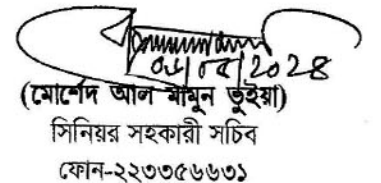 (মোর্শেদ আল মামুন ভূইয়া)
সিনিয়র সহকারী সচিব
ফোন-২২৩৩৫৬৬৩১